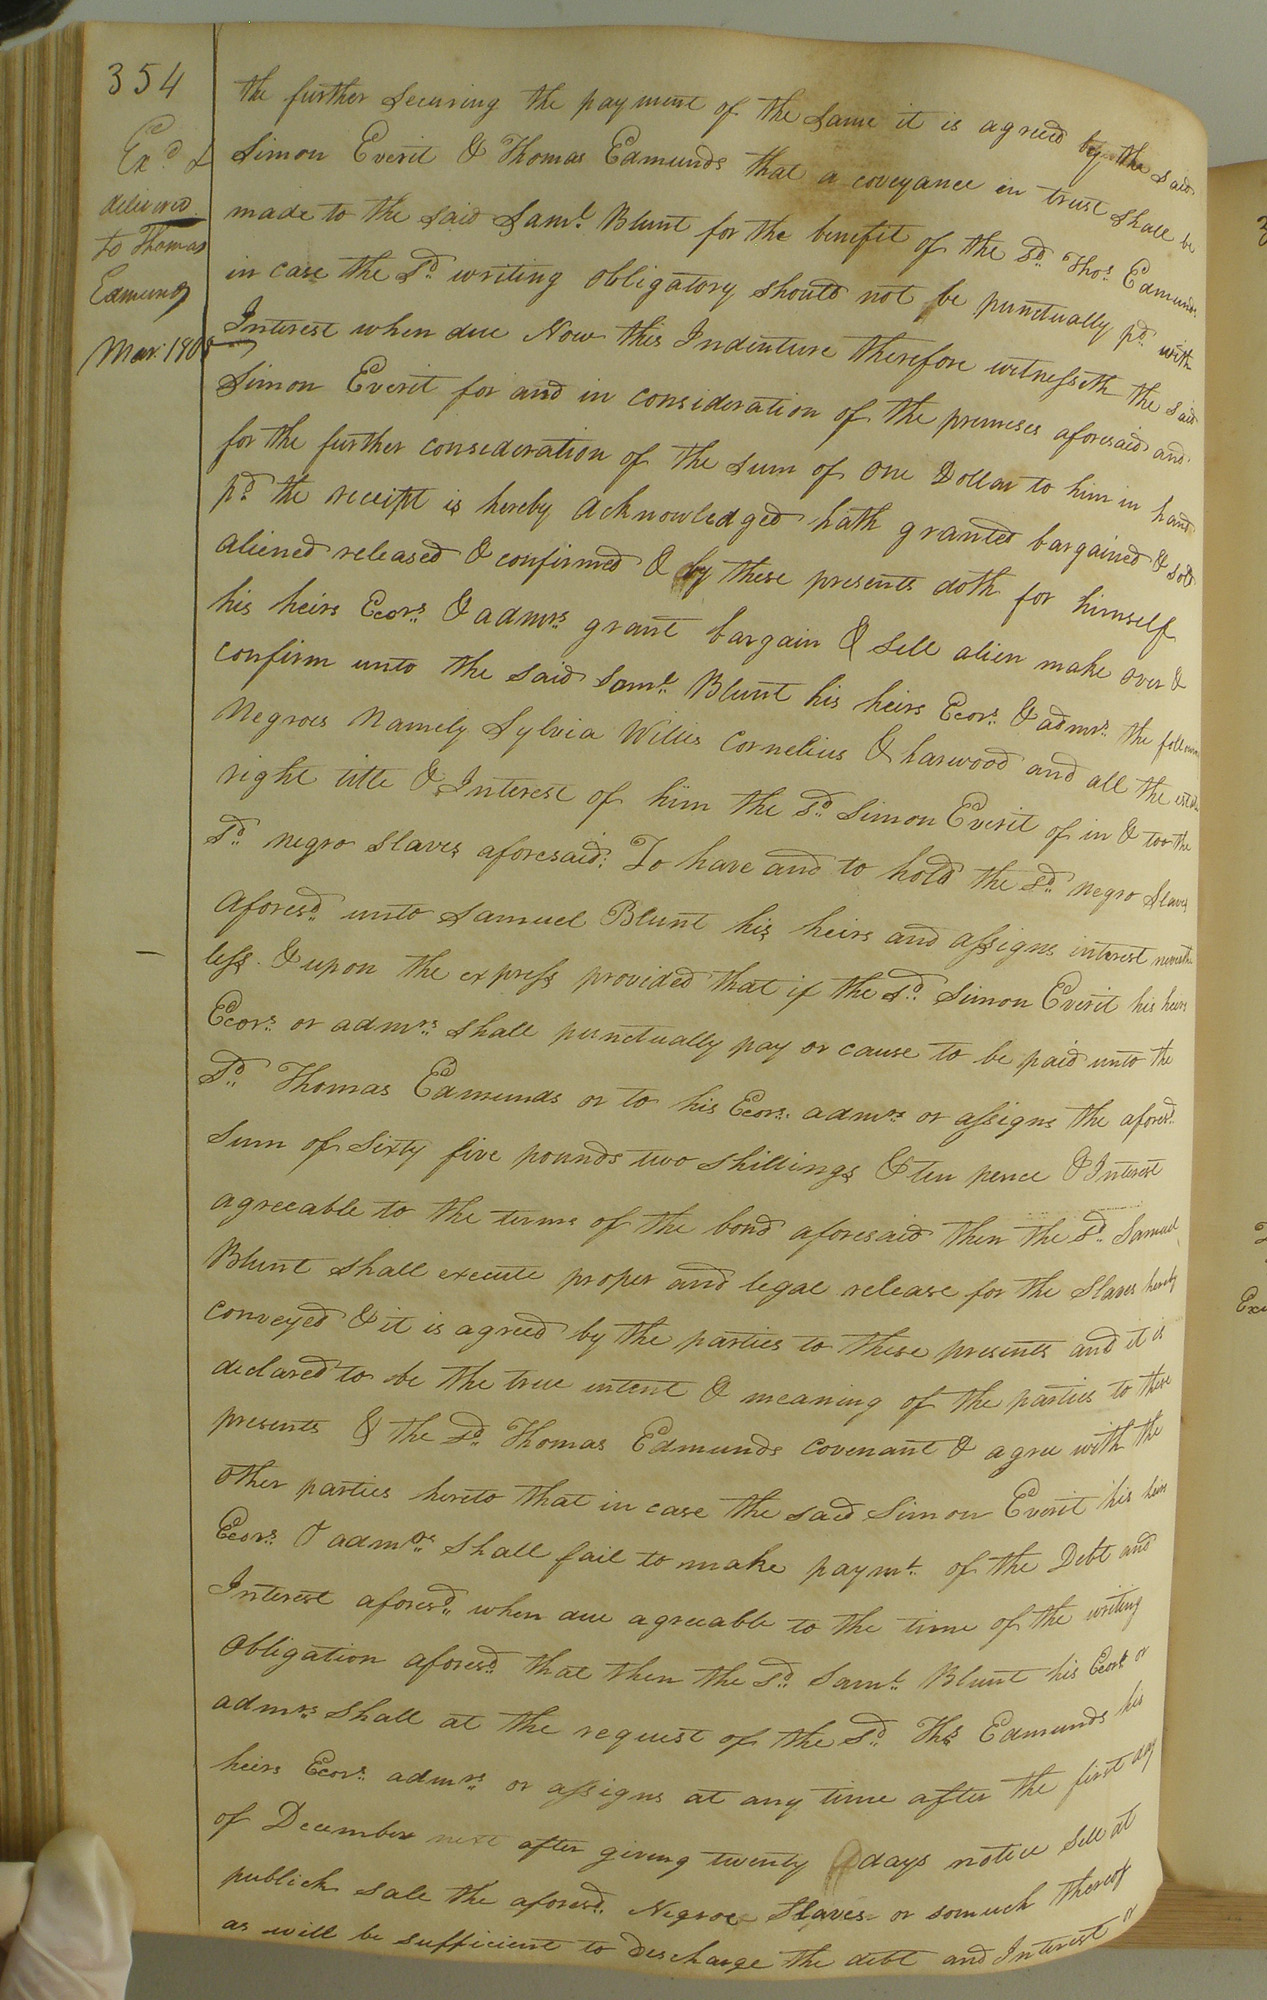 354
Exd. &
delivered
to Thomas
Edmunds
Mar: 1808
the further securing the payment of the same it is agreed by the said
Simon Everit & Thomas Edmunds that a coveyance in trust shall be
made to the said Saml. Blunt for the benefit of the sd. Thos. Edmunds
in case the sd. writing obligatory should not be punctually pd. with
Interest when due Now this Indenture therefore witnesseth the said
Simon Everit for and in consideration of the premises aforesaid and
for the further consideration of the sum of one Dollar to him in hand
pd. the receipt is hereby Acknowledged hath granted bargained & sold
aliened released & confirmed & by these presents doth for himself
his heirs Ecors. & admrs. grant bargain & sell alien make over &
confirm unto the said Saml. Blunt his heirs Ecors. & admrs. the following
Negroes Namely Sylvia Willis Cornelius & harwood and all the estate
right title & Interest of him the sd. Simon Everit of in & too the
sd. negro slaves aforesaid: To have and to hold the sd. negro slaves
aforesd. unto Samuel Blunt his heirs and assigns interest neverthe
less. & upon the express provided that if the sd. Simon Everit his heirs
Ecors. or admrs. shall punctually pay or cause to be paid unto the
sd. Thomas Edmunds or to his Ecors. admrs. or assigns the aforesd.
Sum of Sixty five pounds two shillings & ten pence & Interest
agreeable to the terms of the bond aforesaid then the sd. Samuel
Blunt shall execute proper and legal release for the slaves hereby
conveyed & it is agreed by the parties to these presents and it is
declared to be the true intent & meaning of the parties to these
presents & the sd. Thomas Edmunds covenant & agree with the
other parties hereto that in case the said Simon Everit his heirs
Ecors. & admrs. shall fail to make paymt. of the Debt and
Interest aforesd. when due agreeable to the time of the writing
obligation aforesd. that then the sd. Saml. Blunt his Ecors. or
admrs. shall at the request of the sd. Ths. Edmunds his
heirs Ecors. admrs. or assigns at any time after the first day
of December next after giving twenty days notice sell at
publick sale the aforesd. Negroe Slaves or somuch thereof
as will be sufficient to discharge the debt and Interest or